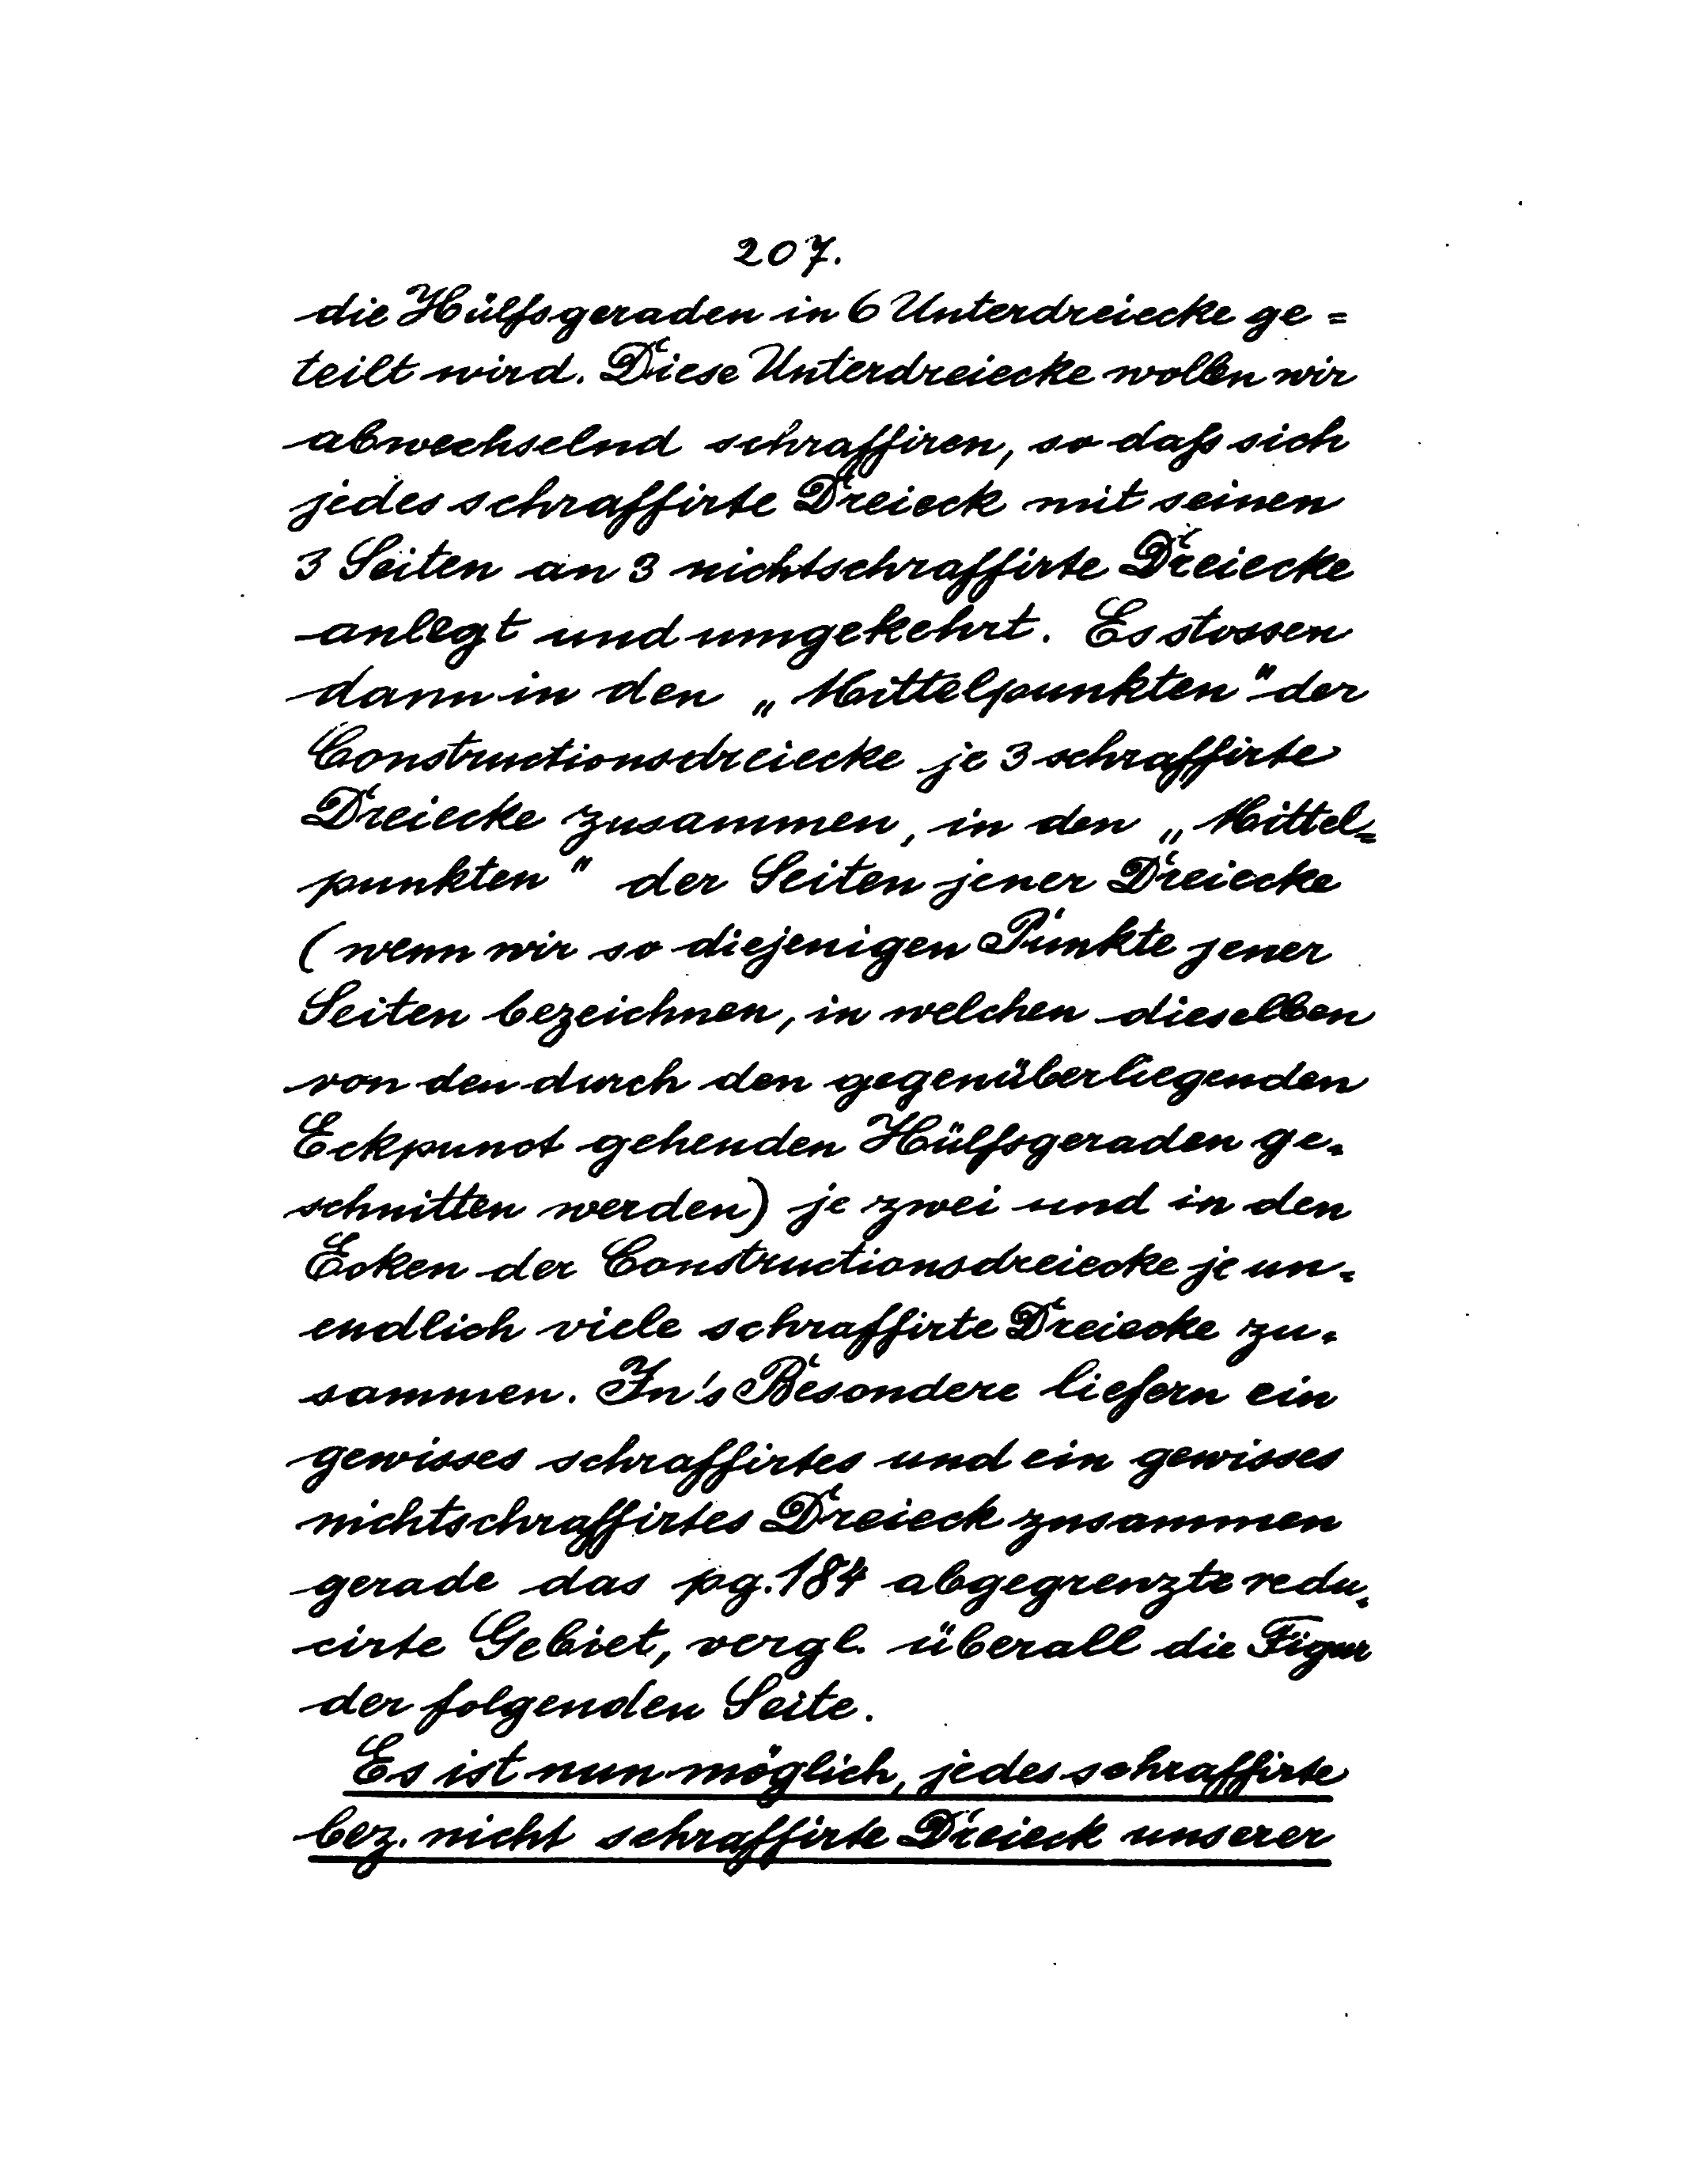 207.
die Hülfsgeraden in 6 Unterdreiecke ge=
teilt wird. Diese Unterdreiecke wollen wir
abwechselnd schraffiren, so daß sich
jedes schraffirte Dreieck mit seinen
3 Seiten an 3 nichtschraffirte Dreiecke
anlegt und umgekehrt. Es stossen
dann in den „Mittelpunkten" der
Constructionsdreiecke je 3 schraffirte
Dreiecke zusammen, in den „Mittel=
punkten" der Seiten jener Dreiecke
(wenn wir so diejenigen Punkte jener
Seiten bezeichnen, in welchen dieselben
von den durch den gegenüberliegenden
Eckpunct gehenden Hülfsgeraden ge=
schnitten werden) je zwei und in den
Ecken der Constructionsdreiecke je un=
endlich viele schraffirte Dreiecke zu=
sammen. In's Besondere liefern ein
gewisses schraffirtes und ein gewisses
nichtschraffirtes Dreieck zusammen
gerade das pg. 184 abgegrenzte redu=
cirte Gebiet, vergl. überall die Figur
der folgenden Seite.
Es ist nun möglich, jedes schraffirte
bez. nicht schraffirte Dreieck unserer